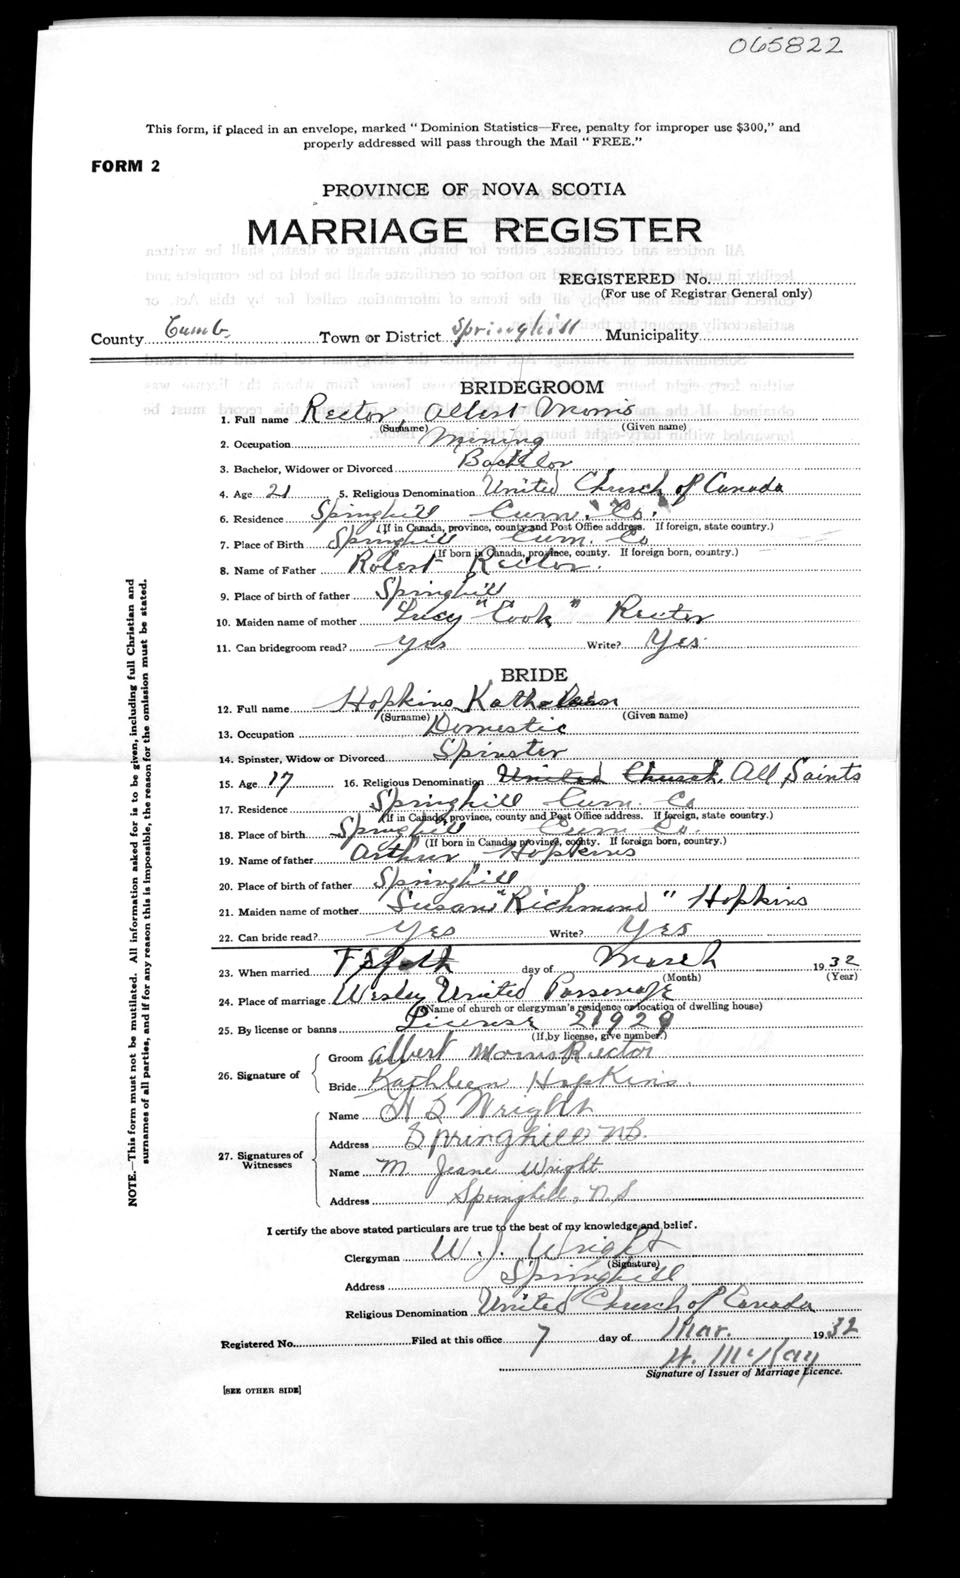 065822
This form, if placed in an envelope, marked "Dominion Statistics—Free, penalty for improper use $300," and
properly addressed will pass through the Mail "FREE."
FORM 2
PROVINCE OF NOVA SCOTIA
MARRIAGE REGISTER
REGISTERED No.
(For use of Registrar General only)
County Cumb. Town or District Springhill Municipality
BRIDEGROOM
1. Full name Rector Albert Morris
(Surname) (Given name)
2. Occupation Mining
3. Bachelor, Widower or Divorced Bachelor
4. Age 21 5. Religious Denomination United Church of Canada
6. Residence Springhill Cum. Co.
(If in Canada, province, county and Post Office address. If foreign, state country.)
7. Place of Birth Springhill Cum. Co
(If born in Canada, province, county. If foreign born, country.)
8. Name of Father Robert Rector.
9. Place of birth of father Springhill
10. Maiden name of mother Lucy "Cook" Rector
11. Can bridegroom read? Yes Write? Yes.
BRIDE
12. Full name Hopkins Kathleen
(Surname) (Given name)
13. Occupation Domestic
14. Spinster, Widow or Divorced Spinster
15. Age 17 16. Religious Denomination United Church. All Saints
17. Residence Springhill Cum. Co
(If in Canada, province, county and Post Office address. If foreign, state country.)
18. Place of birth Springhill Cum Co.
(If born in Canada, province, county. If foreign born, country.)
19. Name of father Arthur Hopkins
20. Place of birth of father Springhill
21. Maiden name of mother Susan "Richmond" Hopkins
22. Can bride read? Yes Write? Yes
23. When married day of March 1932
(Month) (Year)
24. Place of marriage Wesley United Parsonage
(Name of church or clergyman's residence or location of dwelling house)
25. By license or banns License 21929
(If by license, give number.)
26. Signature of
Groom Albert Morris Rector
Bride Kathleen Hopkins.
27. Signatures of Witnesses
Name Wright
Address Springhill N.S.
Name M Jeane Wright
Address Springhill, N.S
I certify the above stated particulars are true to the best of my knowledge and belief.
Clergyman W. J. Wright
(Signature)
Address Springhill
Religious Denomination United Church of Canada
Registered No. Filed at this office 7 day of Mar. 1932
H. McKay
Signature of Issuer of Marriage Licence.
[SEE OTHER SIDE]
NOTE.—This form must not be mutilated. All information asked for is to be given, including full Christian and
surnames of all parties, and if for any reason this is impossible, the reason for the omission must be stated.